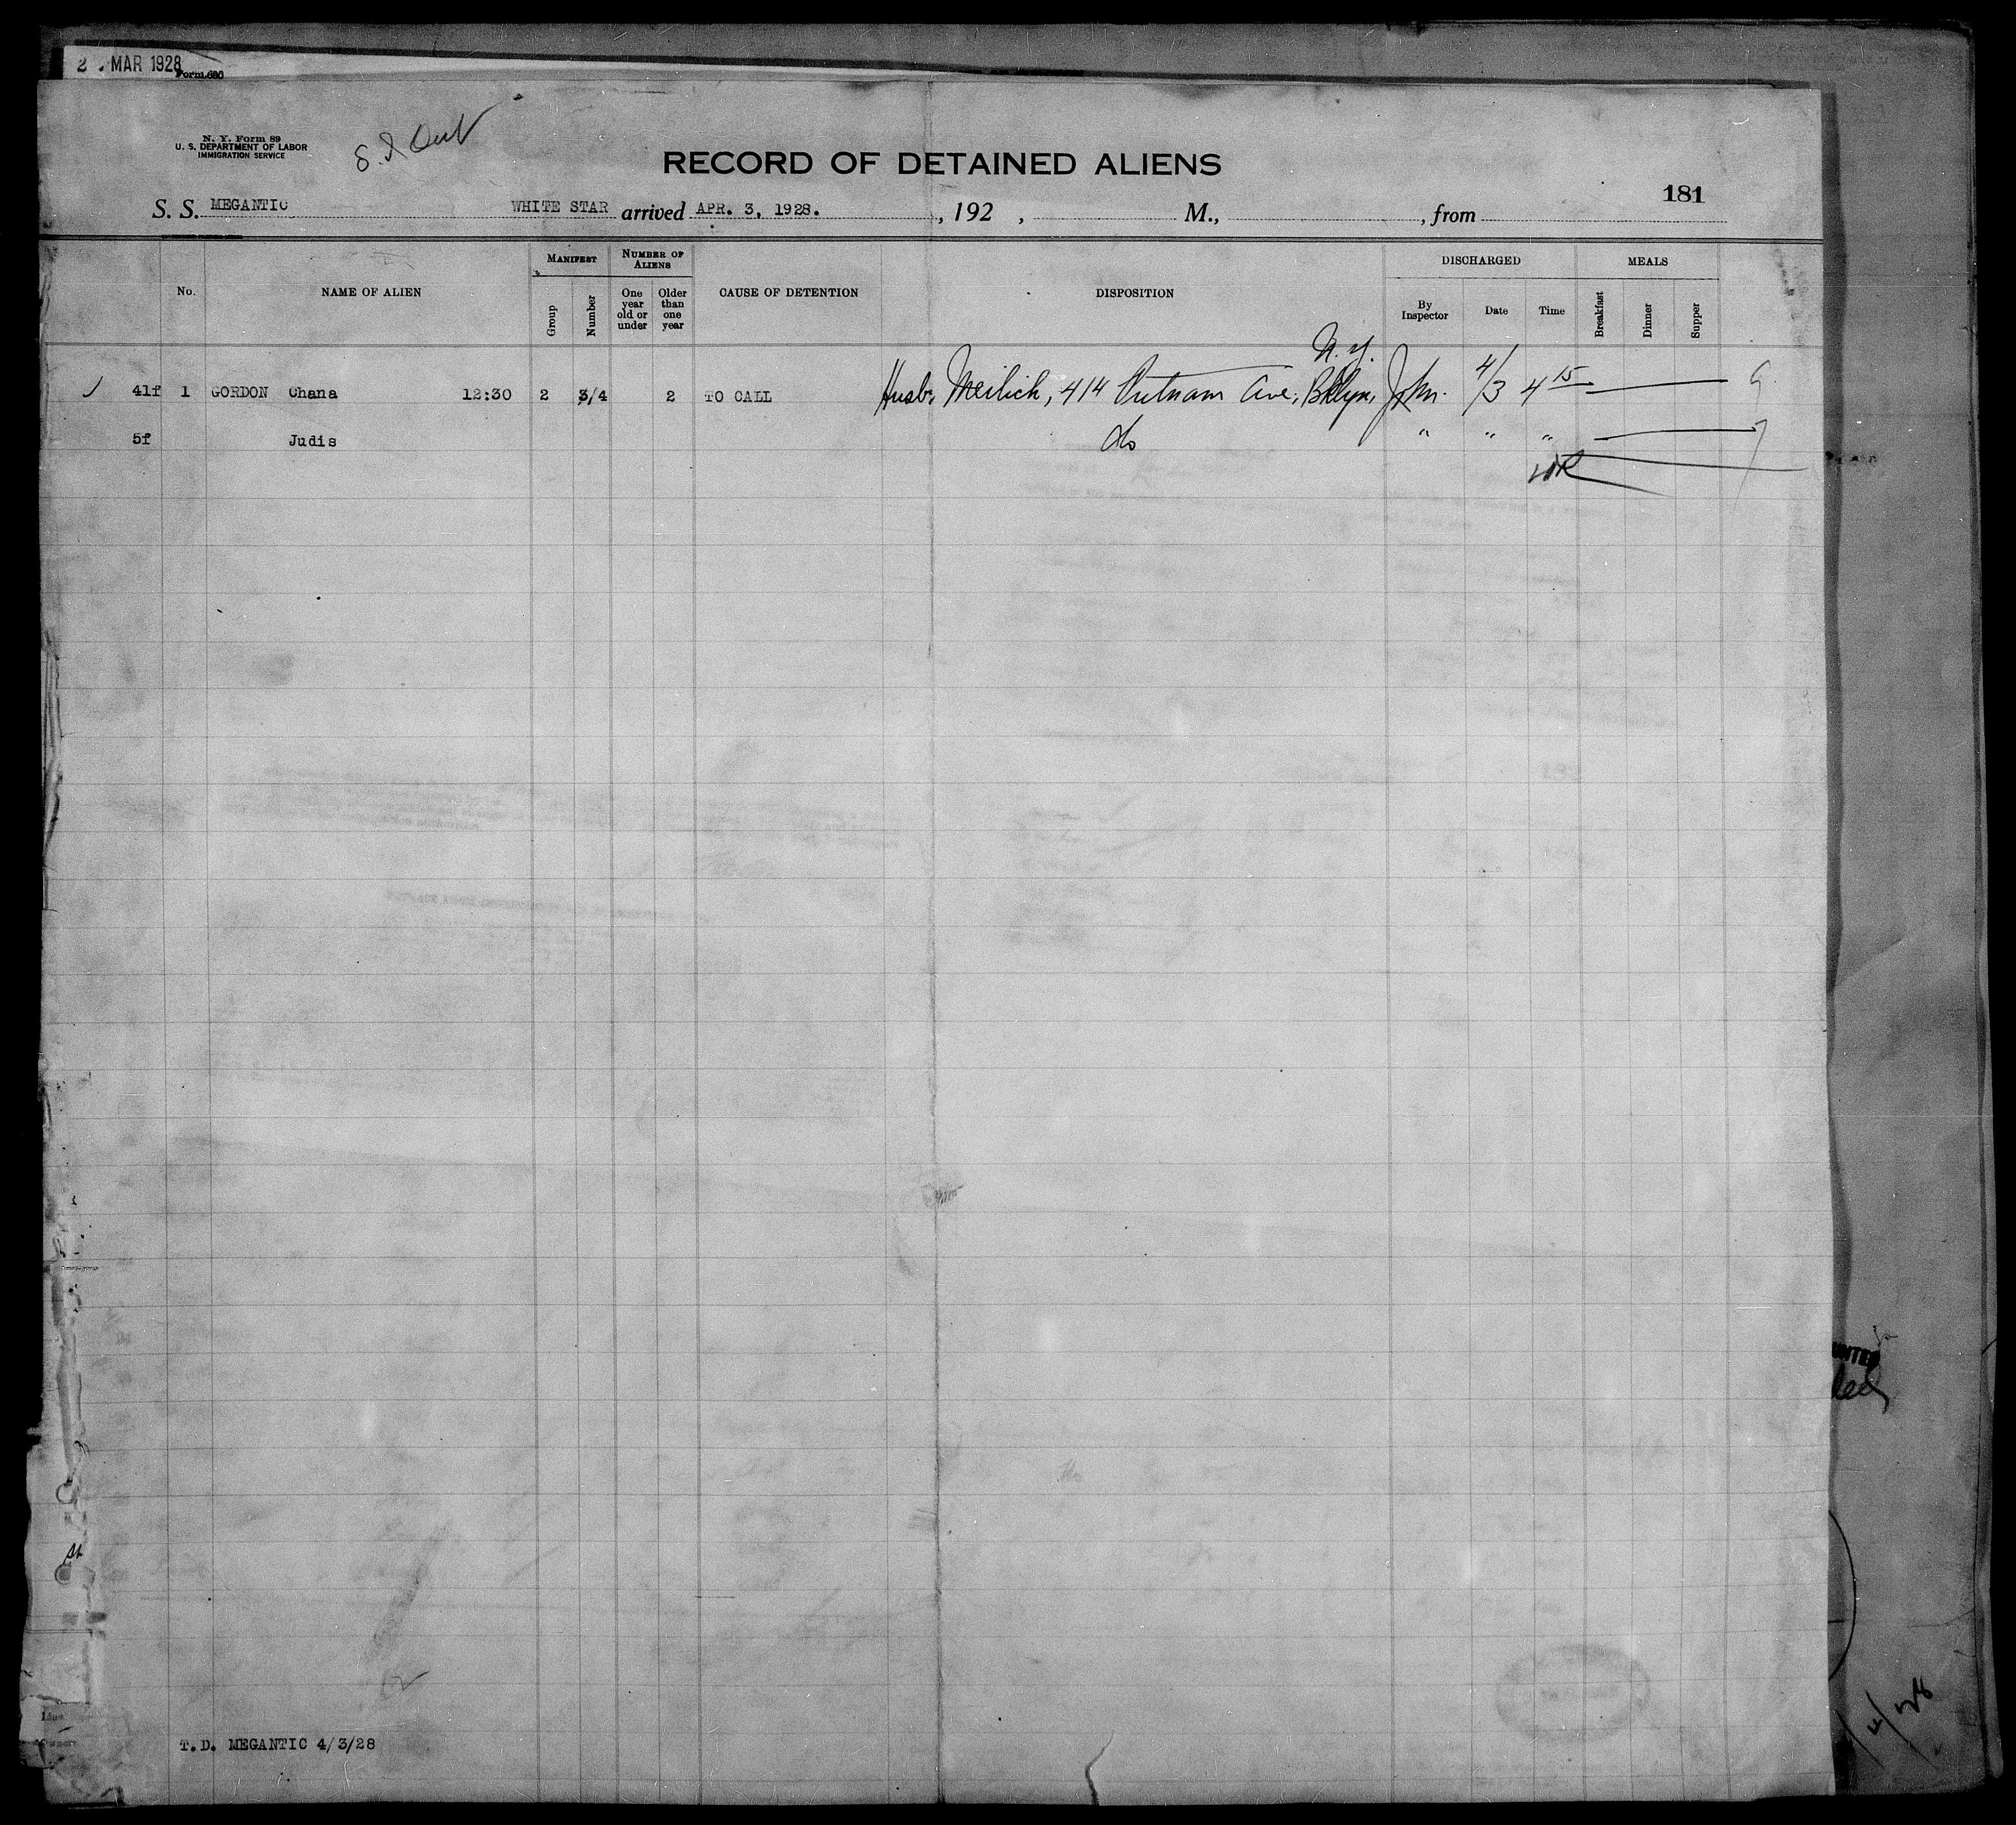 MAR 1928
Form 680
N. Y. Form 89
U. S. DEPARTMENT OF LABOR
IMMIGRATION SERVICE
S.I Out
RECORD OF DETAINED ALIENS
181
S. S. MEGANTIC WHITE STAR arrived APR. 3, 1928. , 192 , M., , from
No. NAME OF ALIEN MANIFEST Group Number NUMBER OF ALIENS One year old or under Older than one year CAUSE OF DETENTION DISPOSITION DISCHARGED By Inspector Date Time MEALS Breakfast Dinner Supper
N.Y.
41f 1 GORDON Chana 12:30 2 3/4 2 TO CALL Husb. Meilich, 414 Putnam Ave, Bklyn, John. 4/3 4 15
5f Judis do " " "
T.D. MEGANTIC 4/3/28